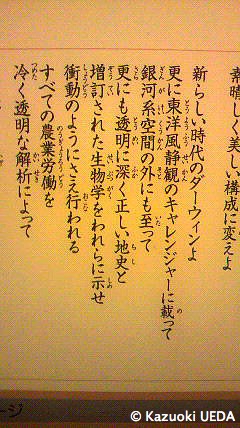 素晴しく美しい構成に変えよ
新らしい時代のダーウィンよ
更に東洋風静観のキャレンジャーに載って
銀河系空間の外にも至って
更にも透明に深く正しい地史と
増訂された生物学をわれらに示せ
衝動のようにさえ行われる
すべての農業労働を
冷く透明な解析によって
ージ
© Kazuoki UEDA